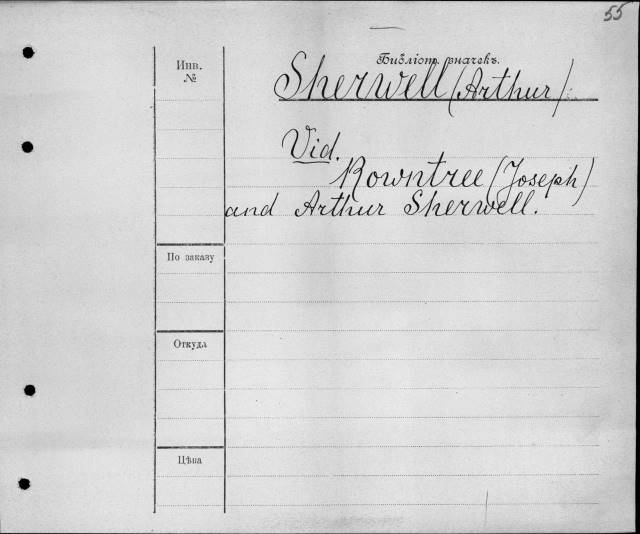 55
Библіот. значекъ.
Инв.
№
Sherwell (Arthur)
Vid.
Rowntree (Joseph)
and Arthur Sherwell.
По заказу
Откуда
Цѣна